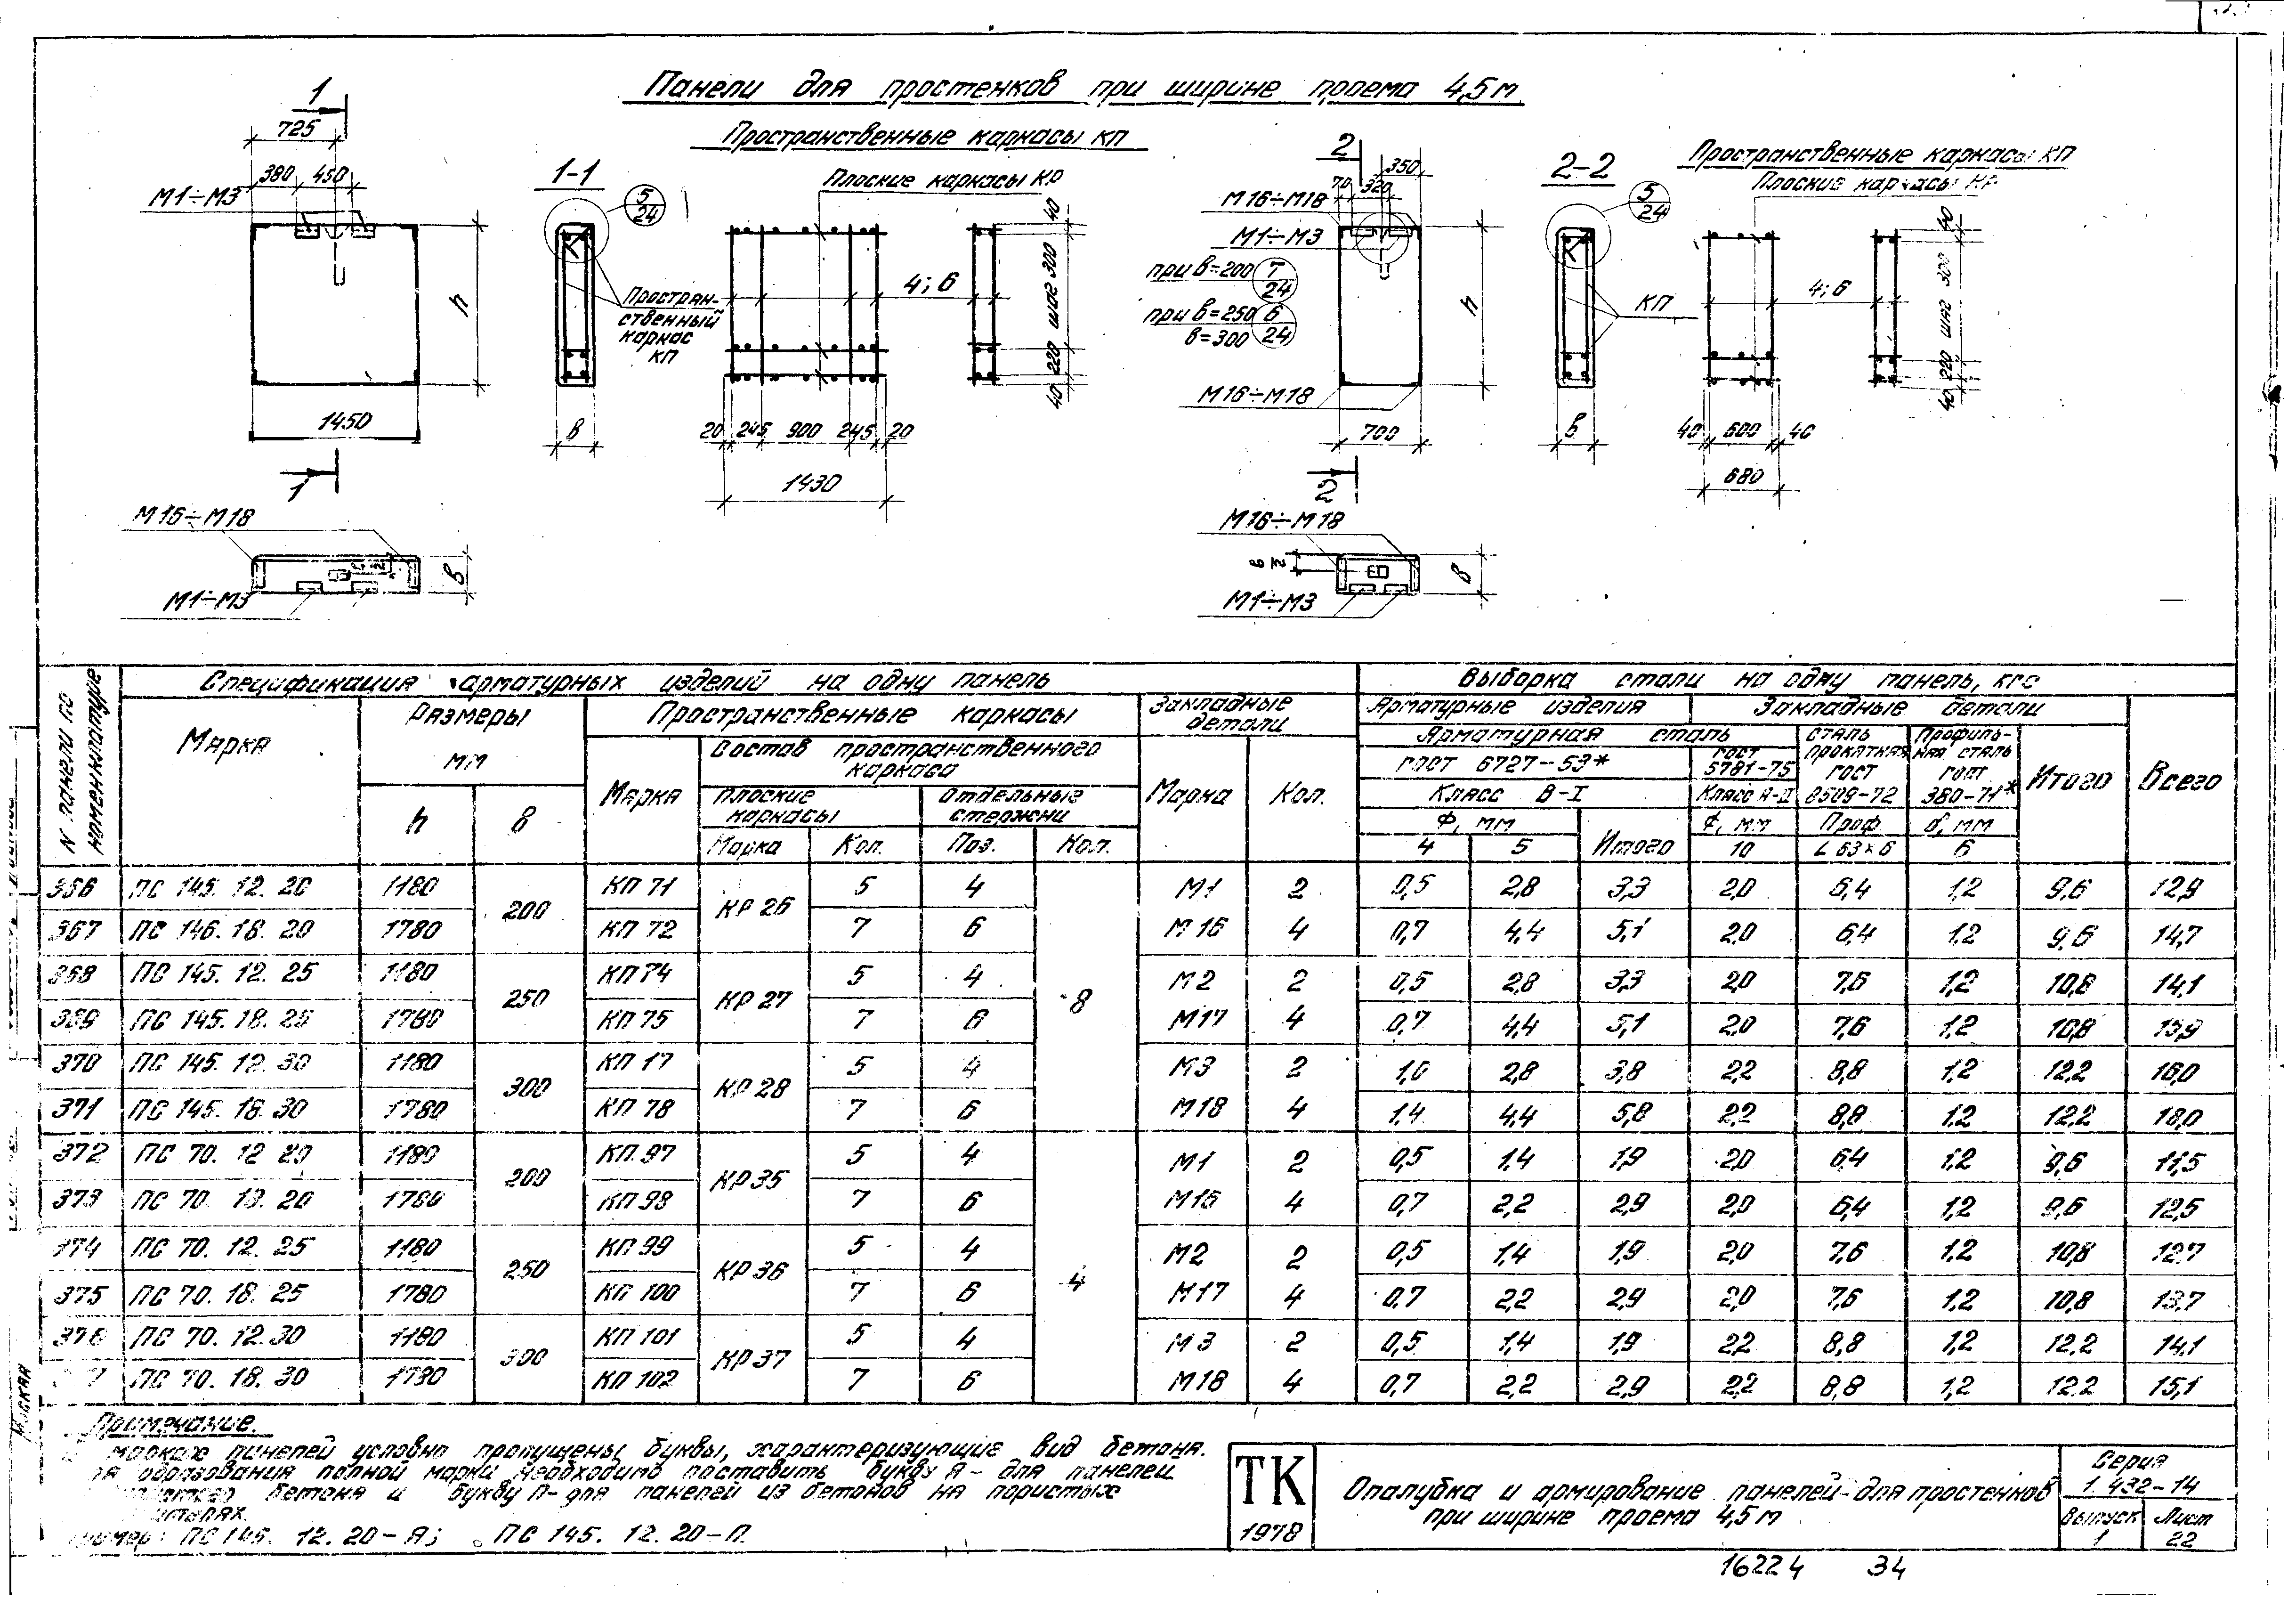 Панели для простенков при ширине проема 4,5 м
Пространственные каркасы КП
1
725
380 450
М1÷М3
h
1450
1
М16÷М18
в
М1÷М3
1-1
5
24
Простран-
ственный
каркас
КП
в
Плоские каркасы КР
4; 6
40
шаг 300
220
40
20 245 900 245 20
1430
2
350
70 320
М16÷М18
М1÷М3
при в=200 7
24
при в=250 6
в=300 24
h
М16÷М18
700
2
М16÷М18
в
2
в
М1÷М3
2-2
5
24
КП
в
Пространственные каркасы КП
Плоские каркасы КР
4; 6
40
шаг 300
220
40
40 600 40
680
N панели по номенклатуре
Спецификация арматурных изделий на одну панель
Выборка стали на одну панель, кгс
Марка
Размеры
мм
h
в
Пространственные каркасы
Марка
Состав пространственного
каркаса
Плоские
каркасы
Отдельные
стержни
Марка Кол. Поз. Кол.
Закладные
детали
Марка Кол.
Арматурные изделия Закладные детали
Арматурная сталь
ГОСТ 6727-53*
Класс В-I
Ф, мм
4 5 Итого
ГОСТ
5781-75
Класс А-II
Ф, мм
10
Сталь
прокатная
ГОСТ
8509-72
Проф
∟63×6
Профиль-
ная сталь
ГОСТ
380-71*
δ, мм
6
Итого
Всего
366 ПС 145. 12. 20 1180 200 КП 71 КР 26 5 4 8 М1 2 0,5 2,8 3,3 2,0 6,4 1,2 9,6 12,9
367 ПС 146. 18. 20 1780 КП 72 7 6 М16 4 0,7 4,4 5,1 2,0 6,4 1,2 9,6 14,7
368 ПС 145. 12. 25 1180 250 КП 74 КР 27 5 4 М2 2 0,5 2,8 3,3 2,0 7,6 1,2 10,8 14,1
369 ПС 145. 18. 25 1780 КП 75 7 6 М17 4 0,7 4,4 5,1 2,0 7,6 1,2 10,8 15,9
370 ПС 145. 12. 30 1180 300 КП 17 КР 28 5 4 М3 2 1,0 2,8 3,8 2,2 8,8 1,2 12,2 16,0
371 ПС 145. 18. 30 1780 КП 78 7 6 М18 4 1,4 4,4 5,8 2,2 8,8 1,2 12,2 18,0
372 ПС 70. 12 20 1180 200 КП 97 КР 35 5 4 4 М1 2 0,5 1,4 1,9 2,0 6,4 1,2 9,6 11,5
373 ПС 70. 18. 20 1780 КП 98 7 6 М16 4 0,7 2,2 2,9 2,0 6,4 1,2 9,6 12,5
174 ПС 70. 12. 25 1180 250 КП 99 КР 36 5 4 М2 2 0,5 1,4 1,9 2,0 7,6 1,2 10,8 12,7
375 ПС 70. 18. 25 1780 КП 100 7 6 М17 4 0,7 2,2 2,9 2,0 7,6 1,2 10,8 13,7
376 ПС 70. 12. 30 1180 300 КП 101 КР 37 5 4 М3 2 0,5 1,4 1,9 2,2 8,8 1,2 12,2 14,1
7 ПС 70. 18. 30 1780 КП 102 7 6 М18 4 0,7 2,2 2,9 2,2 8,8 1,2 12,2 15,1
Примечание.
марках панелей условно пропущены буквы, характеризующие вид бетона.
образования полной марки необходимо поставить букву Я- для панелей
бетона и букву П- для панелей из бетонов на пористых
ПС 145. 12. 20-Я; ПС 145. 12. 20-П.
ТК
1978
Опалубка и армирование панелей для простенков
при ширине проема 4,5 м
Серия
1.432-14
Выпуск Лист
1 22
16224 34